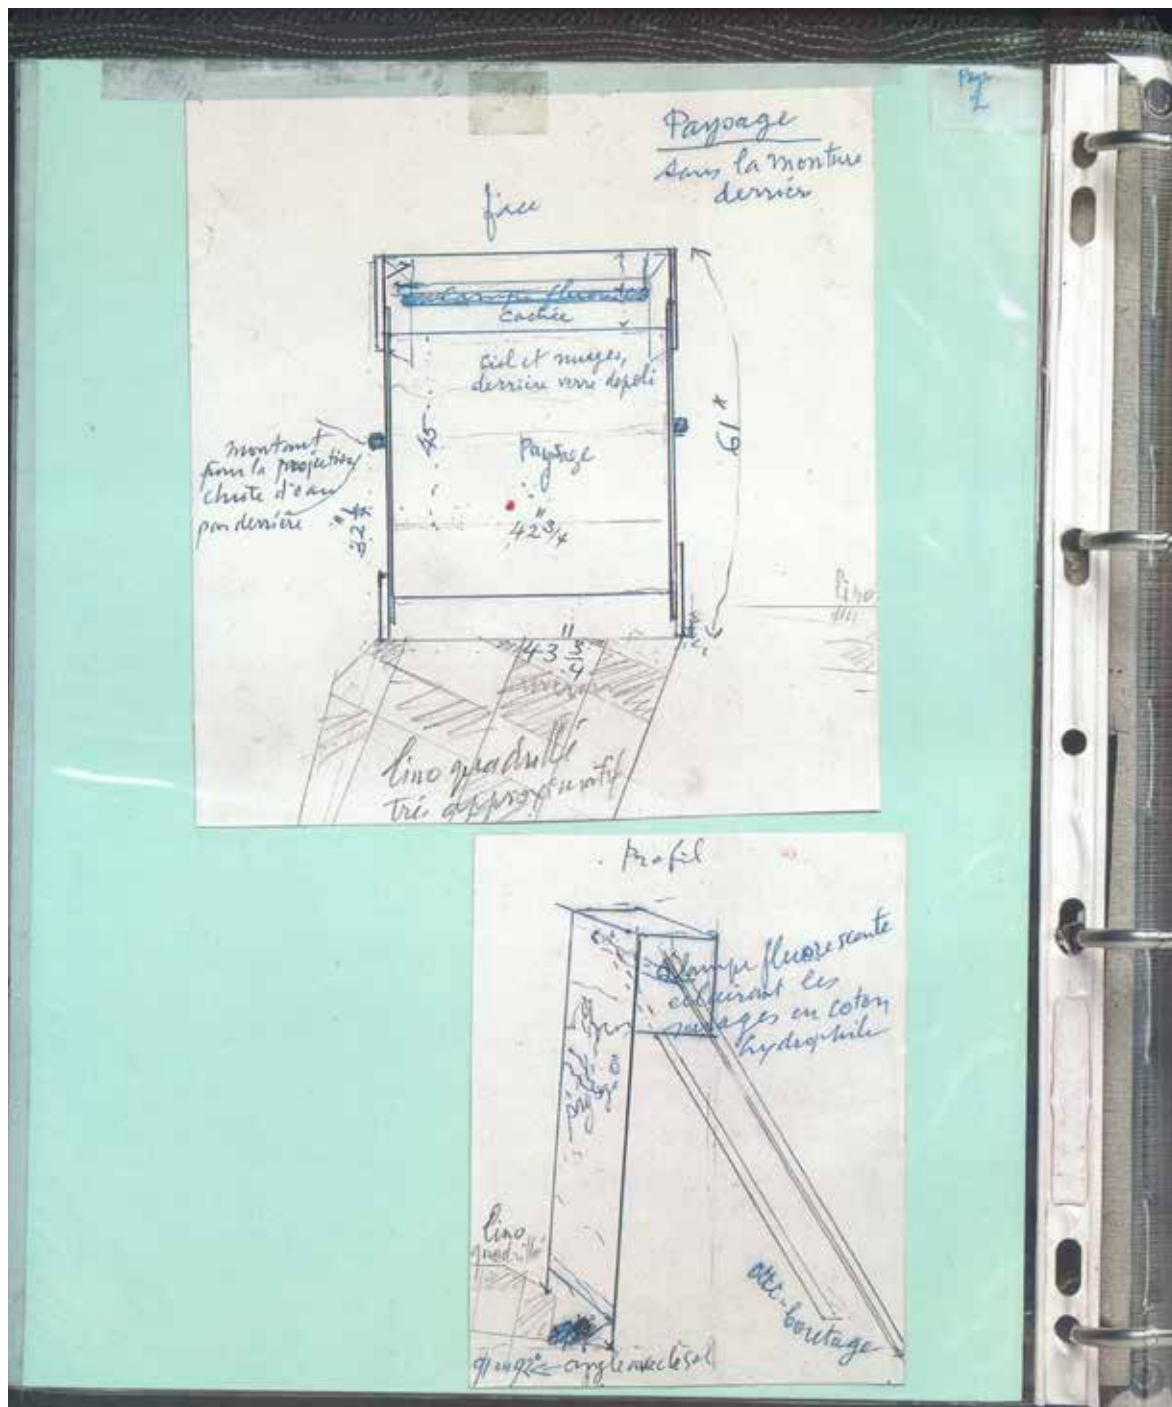 Page
Paysage
sans la monture
derrière
face
Lampe fluo
cachée
ciel et nuages,
derrière verre dépoli
61"
45
Paysage
montant
pour la projection
chute d'eau
par derrière
42" 3/4
43" 3/4
lino quadrillé
très approximatif
lino
Profil
lampe fluorescente
éclairant les
nuages en coton
hydrophile
paysage
lino
quadrillé
arc-boutage
91 ou 92° angle avec le sol